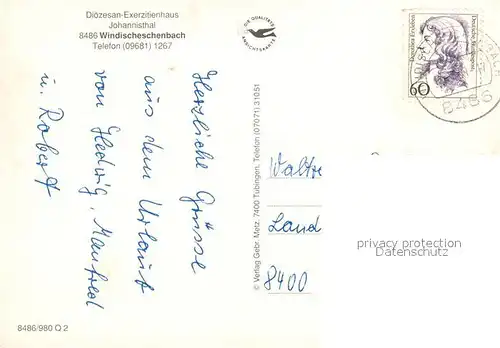 Diözesan-Exerzitienhaus
Johannisthal
8486 Windischeschenbach
Telefon (09681) 1267
Herzliche Grüsse
aus dem Urlaub
von Hedwig, Manfred
u. Robert
8486/980 Q 2
© Verlag Gebr. Metz, 7400 Tübingen, Telefon (07071) 31051
DIE QUALITÄTS
ANSICHTSKARTE
60
8486
Walte
Land
8400
privacy protection
Datenschutz